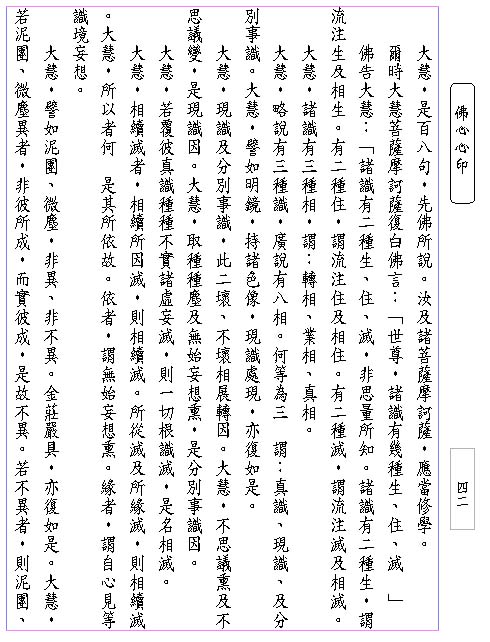 佛心心印
大慧，是百八句，先佛所說。汝及諸菩薩摩訶薩，應當修學。
爾時大慧菩薩摩訶薩復白佛言：「世尊，諸識有幾種生、住、滅　」
佛告大慧：「諸識有二種生、住、滅，非思量所知。諸識有二種生，謂
流注生及相生。有二種住，謂流注住及相住。有二種滅，謂流注滅及相滅。
大慧，諸識有三種相，謂：轉相、業相、真相。
大慧，略說有三種識，廣說有八相。何等為三　謂：真識、現識、及分
別事識。大慧，譬如明鏡，持諸色像，現識處現，亦復如是。
大慧，現識及分別事識，此二壞、不壞相展轉因。大慧，不思議熏及不
思議變，是現識因。大慧，取種種塵及無始妄想熏，是分別事識因。
大慧，若覆彼真識種種不實諸虛妄滅，則一切根識滅，是名相滅。
大慧，相續滅者，相續所因滅，則相續滅。所從滅及所緣滅，則相續滅
。大慧，所以者何　是其所依故。依者，謂無始妄想熏。緣者，謂自心見等
識境妄想。
大慧，譬如泥團、微塵，非異、非不異。金莊嚴具，亦復如是。大慧，
若泥團、微塵異者，非彼所成，而實彼成，是故不異。若不異者，則泥團、
四二